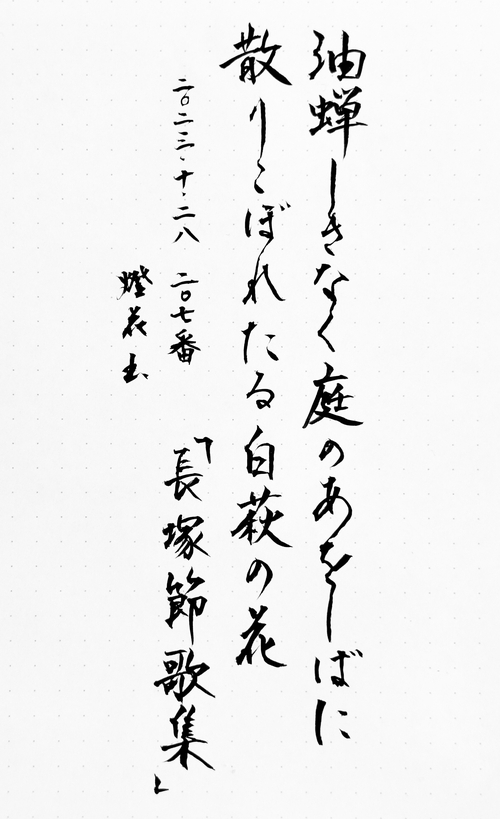 油蝉しきなく庭のあをしばに
散りこぼれたる白萩の花
二〇二三・十・二八 二〇七番
『長塚節歌集』
燈花